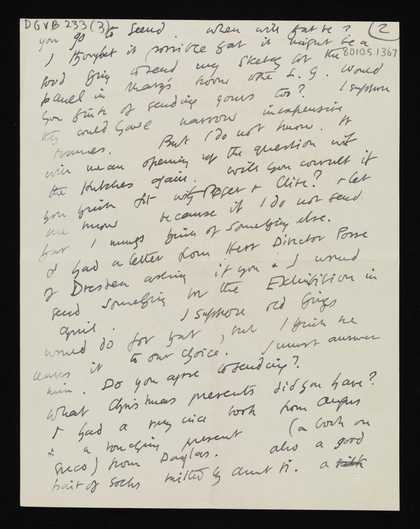 DGVB 233 (3)
(2
80105.1367
you go to Seend. When will that be?
I thought it possible that it might be a
good thing to send my sketch of the
panel in Mary's room to the L.G. Would
you think of sending yours too? I suppose
they could have narrow inexpensive
frames. But I do not know. It
will mean opening up the question with
the Hutches again. Will you consult if
you think fit with Roger + Clive? + let
me know because if I do not send
that I must think of something else.
I had a letter from Herr Director Posse
of Dresden asking if you + I would
send something for the Exhibition in
April. I suppose old things
would do for that, but I think he
leaves it to our choice. I must answer
him. Do you agree to sending?
What Christmas presents did you have?
I had a very nice book from Angus
+ a touching present (a book on
Greco) from Douglas. also a good
pair of socks knitted by Aunt